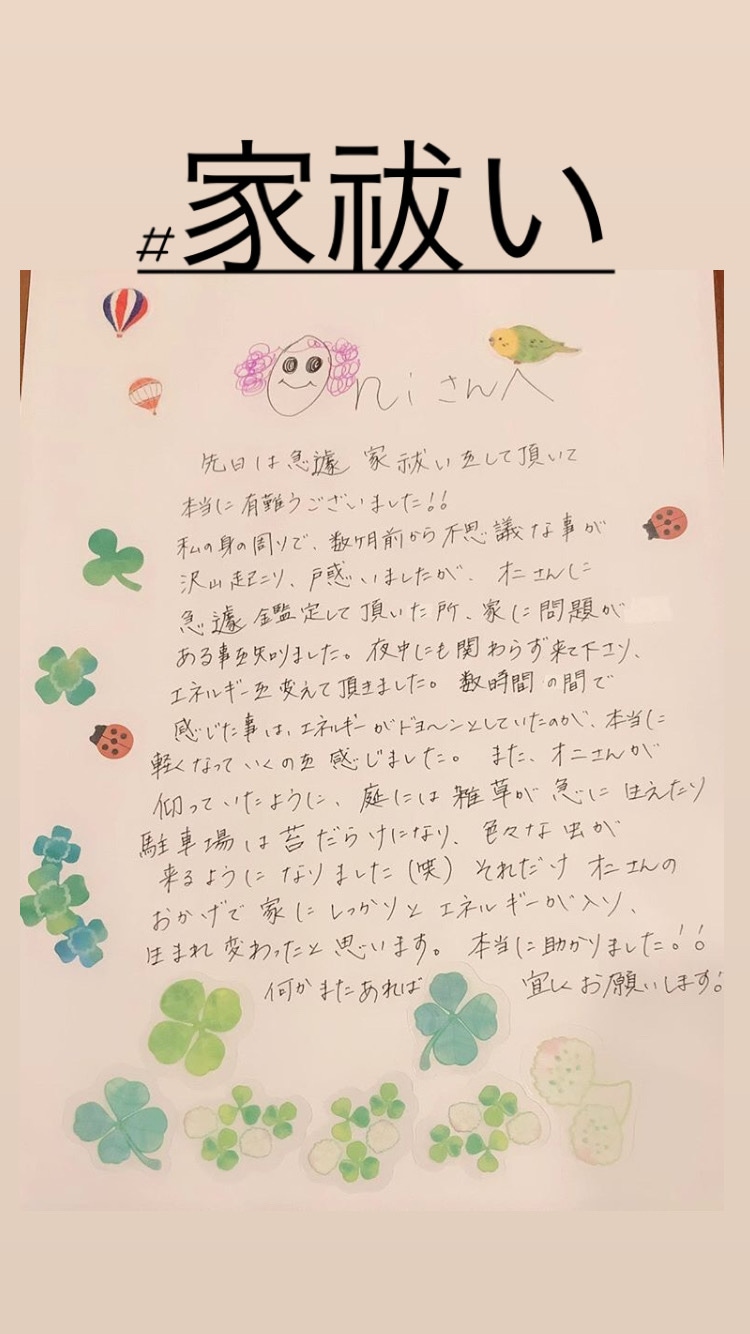 #家祓い
Oniさんへ
先日は急遽 家祓いをして頂いて
本当に有難うございました!!
私の身の周りで、数ヶ月前から不思議な事が
沢山起こり、戸惑いましたが、オニさんに
急遽鑑定して頂いた所、家に問題が
ある事を知りました。夜中にも関わらず来て下さり、
エネルギーを変えて頂きました。数時間の間で
感じた事は、エネルギーがドヨ〜ンとしていたのが、本当に
軽くなっていくのを感じました。また、オニさんが
仰っていたように、庭には雑草が急に生えたり
駐車場は苔だらけになり、色々な虫が
来るようになりました(笑)それだけオニさんの
おかげで家にしっかりとエネルギーが入り、
生まれ変わったと思います。本当に助かりました!!
何かまたあれば 宜しくお願いします!